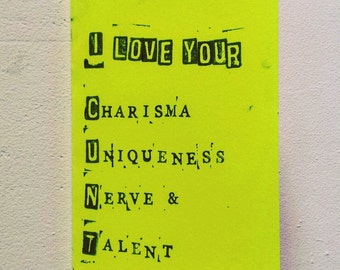 I LOVE YOUR
CHARISMA
UNIQUENESS
NERVE &
TALENT